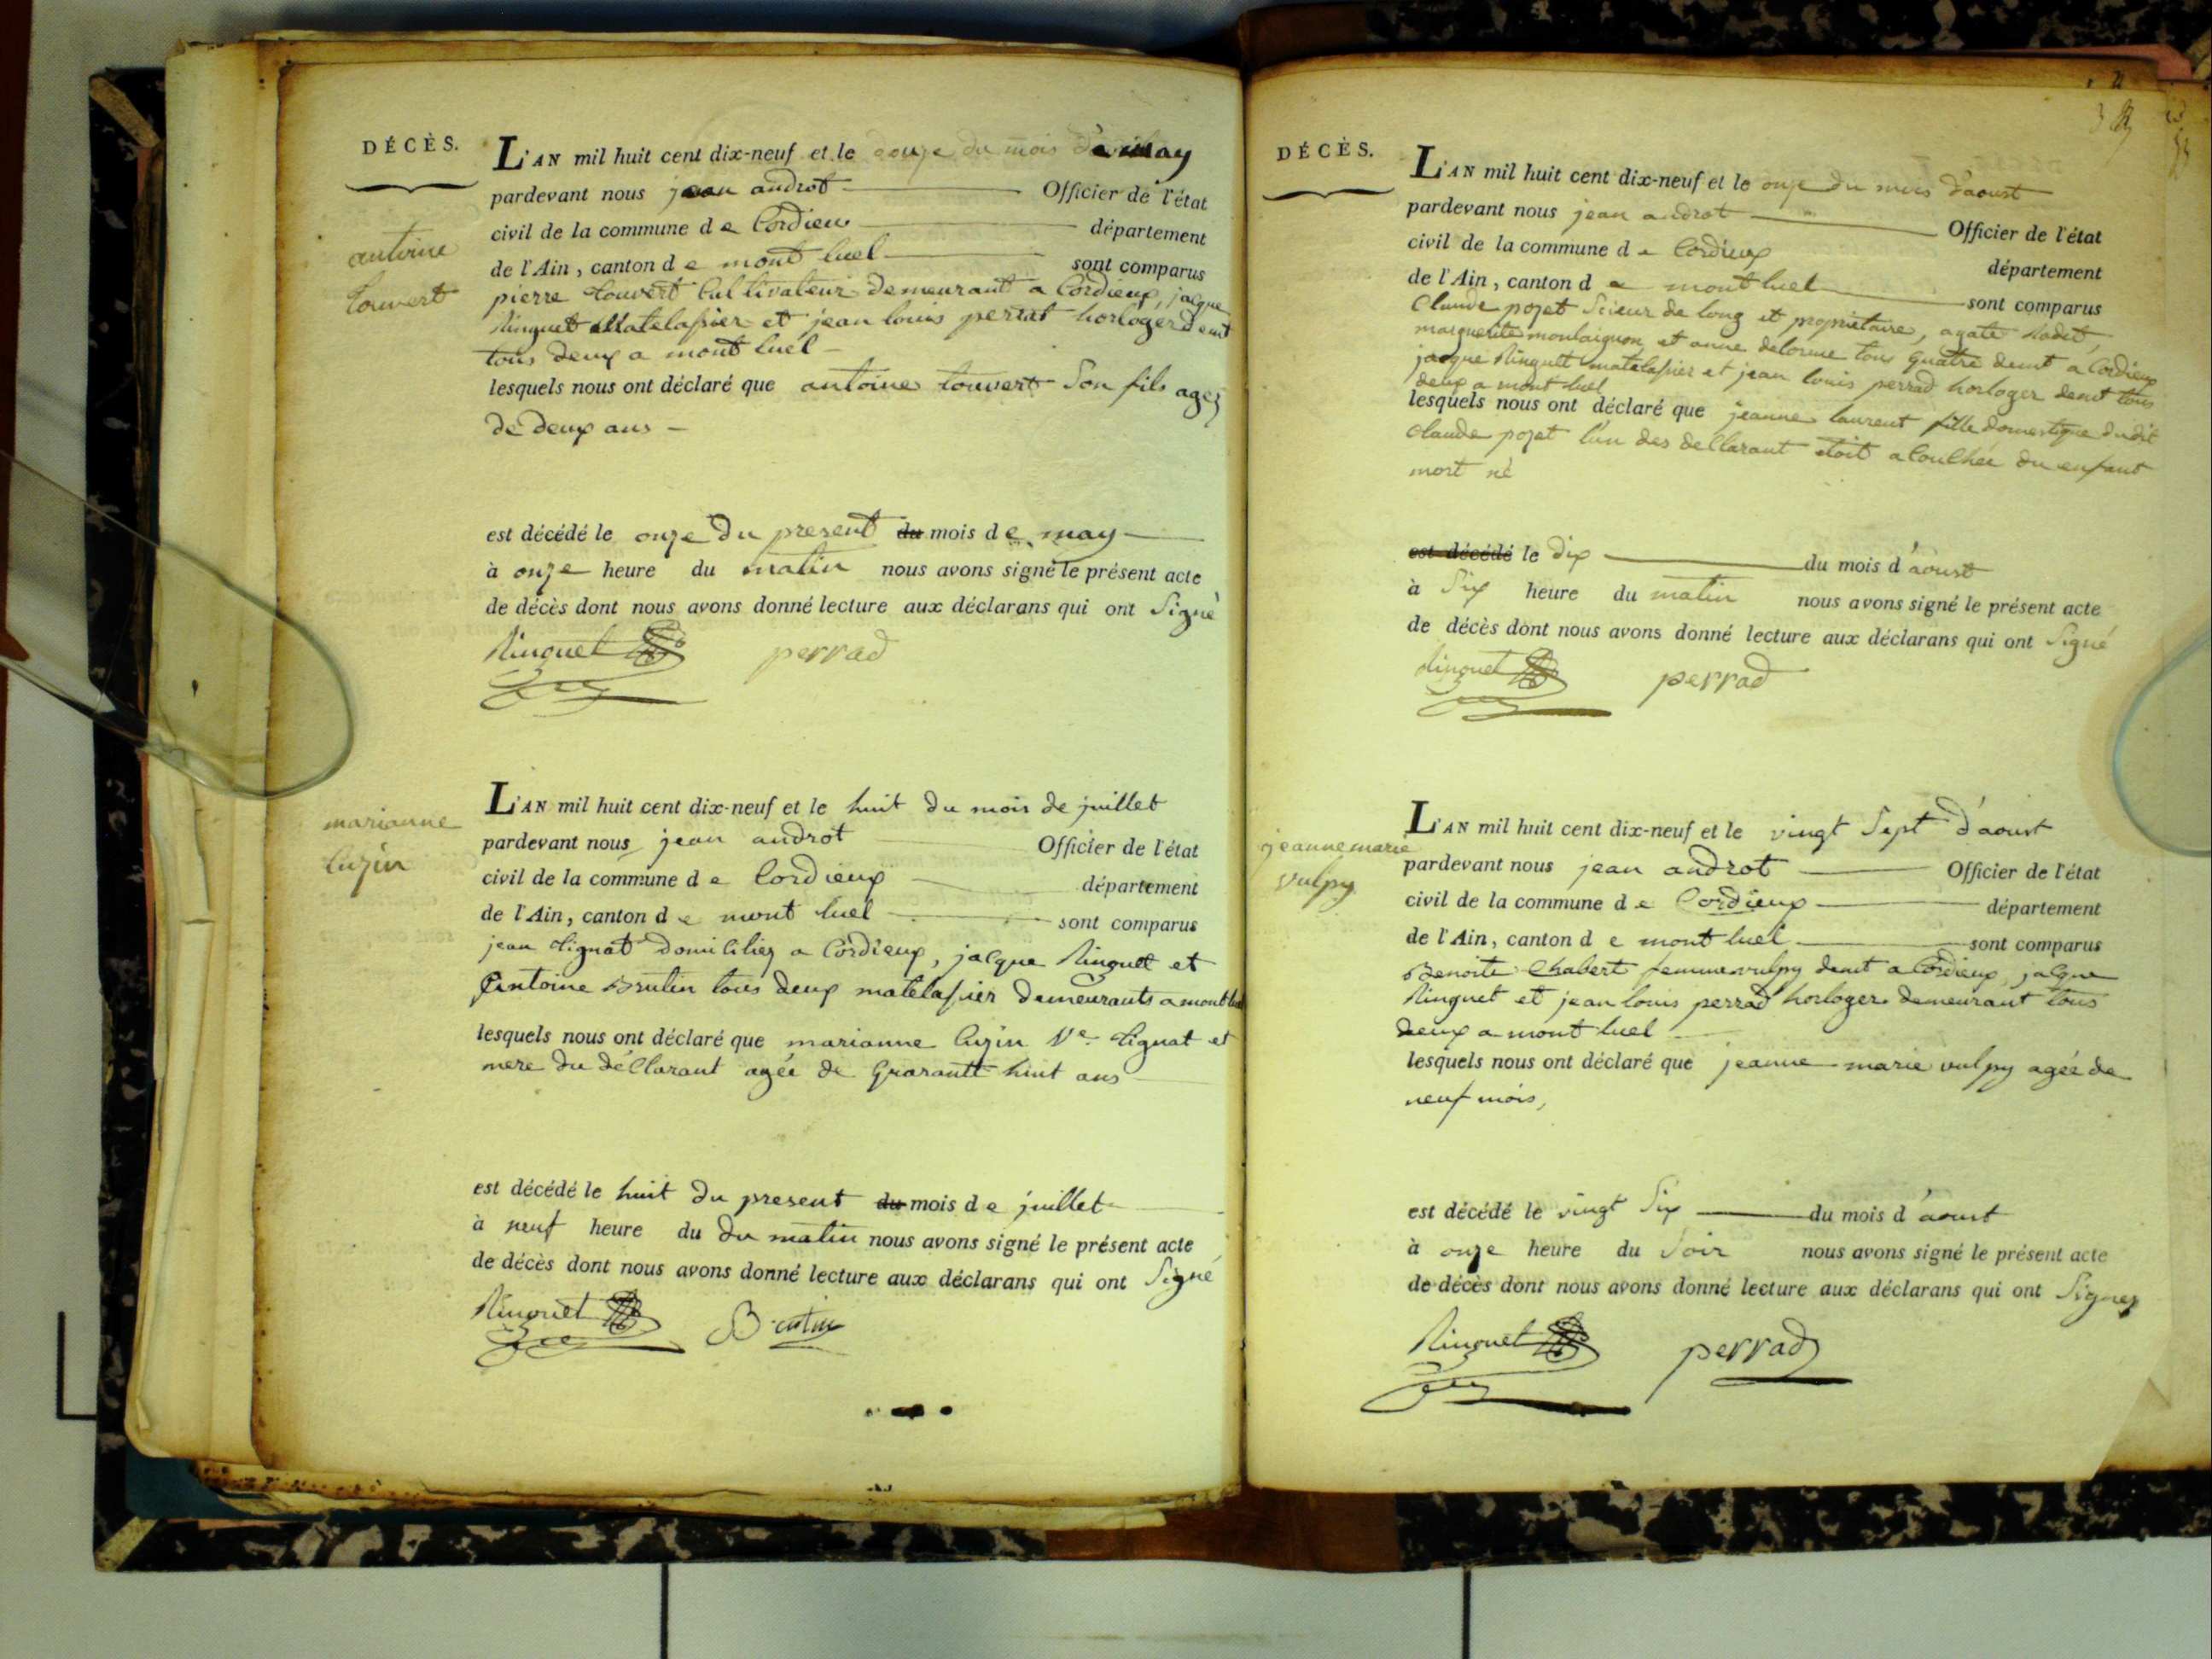 DÉCÈS.
L'AN mil huit cent dix-neuf et le douze du mois de may
pardevant nous jean androt Officier de l'état
civil de la commune de Cordieu département
de l'Ain, canton de mont luel sont comparus
antoine
touvert
pierre touvert Cultivateur demeurant a Cordieux, jacque
Ringuet Matelassier et jean louis perrat horloger demt
tous deux a mont luel
lesquels nous ont déclaré que antoine touvert Son fils agez
de deux ans
est décédé le onze du present du mois de may
à onze heure du matin nous avons signé le présent acte
de décès dont nous avons donné lecture aux déclarans qui ont Signé
Ringuet perrad
L'AN mil huit cent dix-neuf et le huit du mois de juillet
marianne
luzin
pardevant nous jean androt Officier de l'état
civil de la commune de Cordieux département
de l'Ain, canton de mont luel sont comparus
jean tignat domiciliez a Cordieux, jacque Ringuet et
antoine Brutin tous deux matelassier demeurants a mont luel
lesquels nous ont déclaré que marianne luzin Ve tignat et
mere du déclarant agée de quarante huit ans
est décédé le huit du present du mois de juillet
à neuf heure du du matin nous avons signé le présent acte
de décès dont nous avons donné lecture aux déclarans qui ont Signé
Ringuet
DÉCÈS.
L'AN mil huit cent dix-neuf et le onze du mois d'aoust
pardevant nous jean androt Officier de l'état
civil de la commune de Cordieux département
de l'Ain, canton de mont luel sont comparus
Claude pozet Scieur de long et propriétaire, agate
marguerite et anne delorme tous quatre demt a Cordieux
jacque Ringuet matelassier et jean louis perrad horloger demt tous
deux a mont luel
lesquels nous ont déclaré que jeanne laurent fille domestique dudit
Claude pozet l'un des declarant etoit acouchée du enfant
mort né
est décédé le dix du mois d'aoust
à Six heure du matin nous avons signé le présent acte
de décès dont nous avons donné lecture aux déclarans qui ont Signé
Ringuet perrad
L'AN mil huit cent dix-neuf et le vingt Sept d'aoust
jeanne marie
vulpy
pardevant nous jean androt Officier de l'état
civil de la commune de Cordieux département
de l'Ain, canton de mont luel sont comparus
Benoite Chabert femme vulpy demt a Cordieux, jacque
Ringuet et jean louis perrad horloger demeurant tous
deux a mont luel
lesquels nous ont déclaré que jeanne marie vulpy agée de
neuf mois,
est décédé le vingt Six du mois d'aoust
à onze heure du Soir nous avons signé le présent acte
de décès dont nous avons donné lecture aux déclarans qui ont Signez
Ringuet perrad